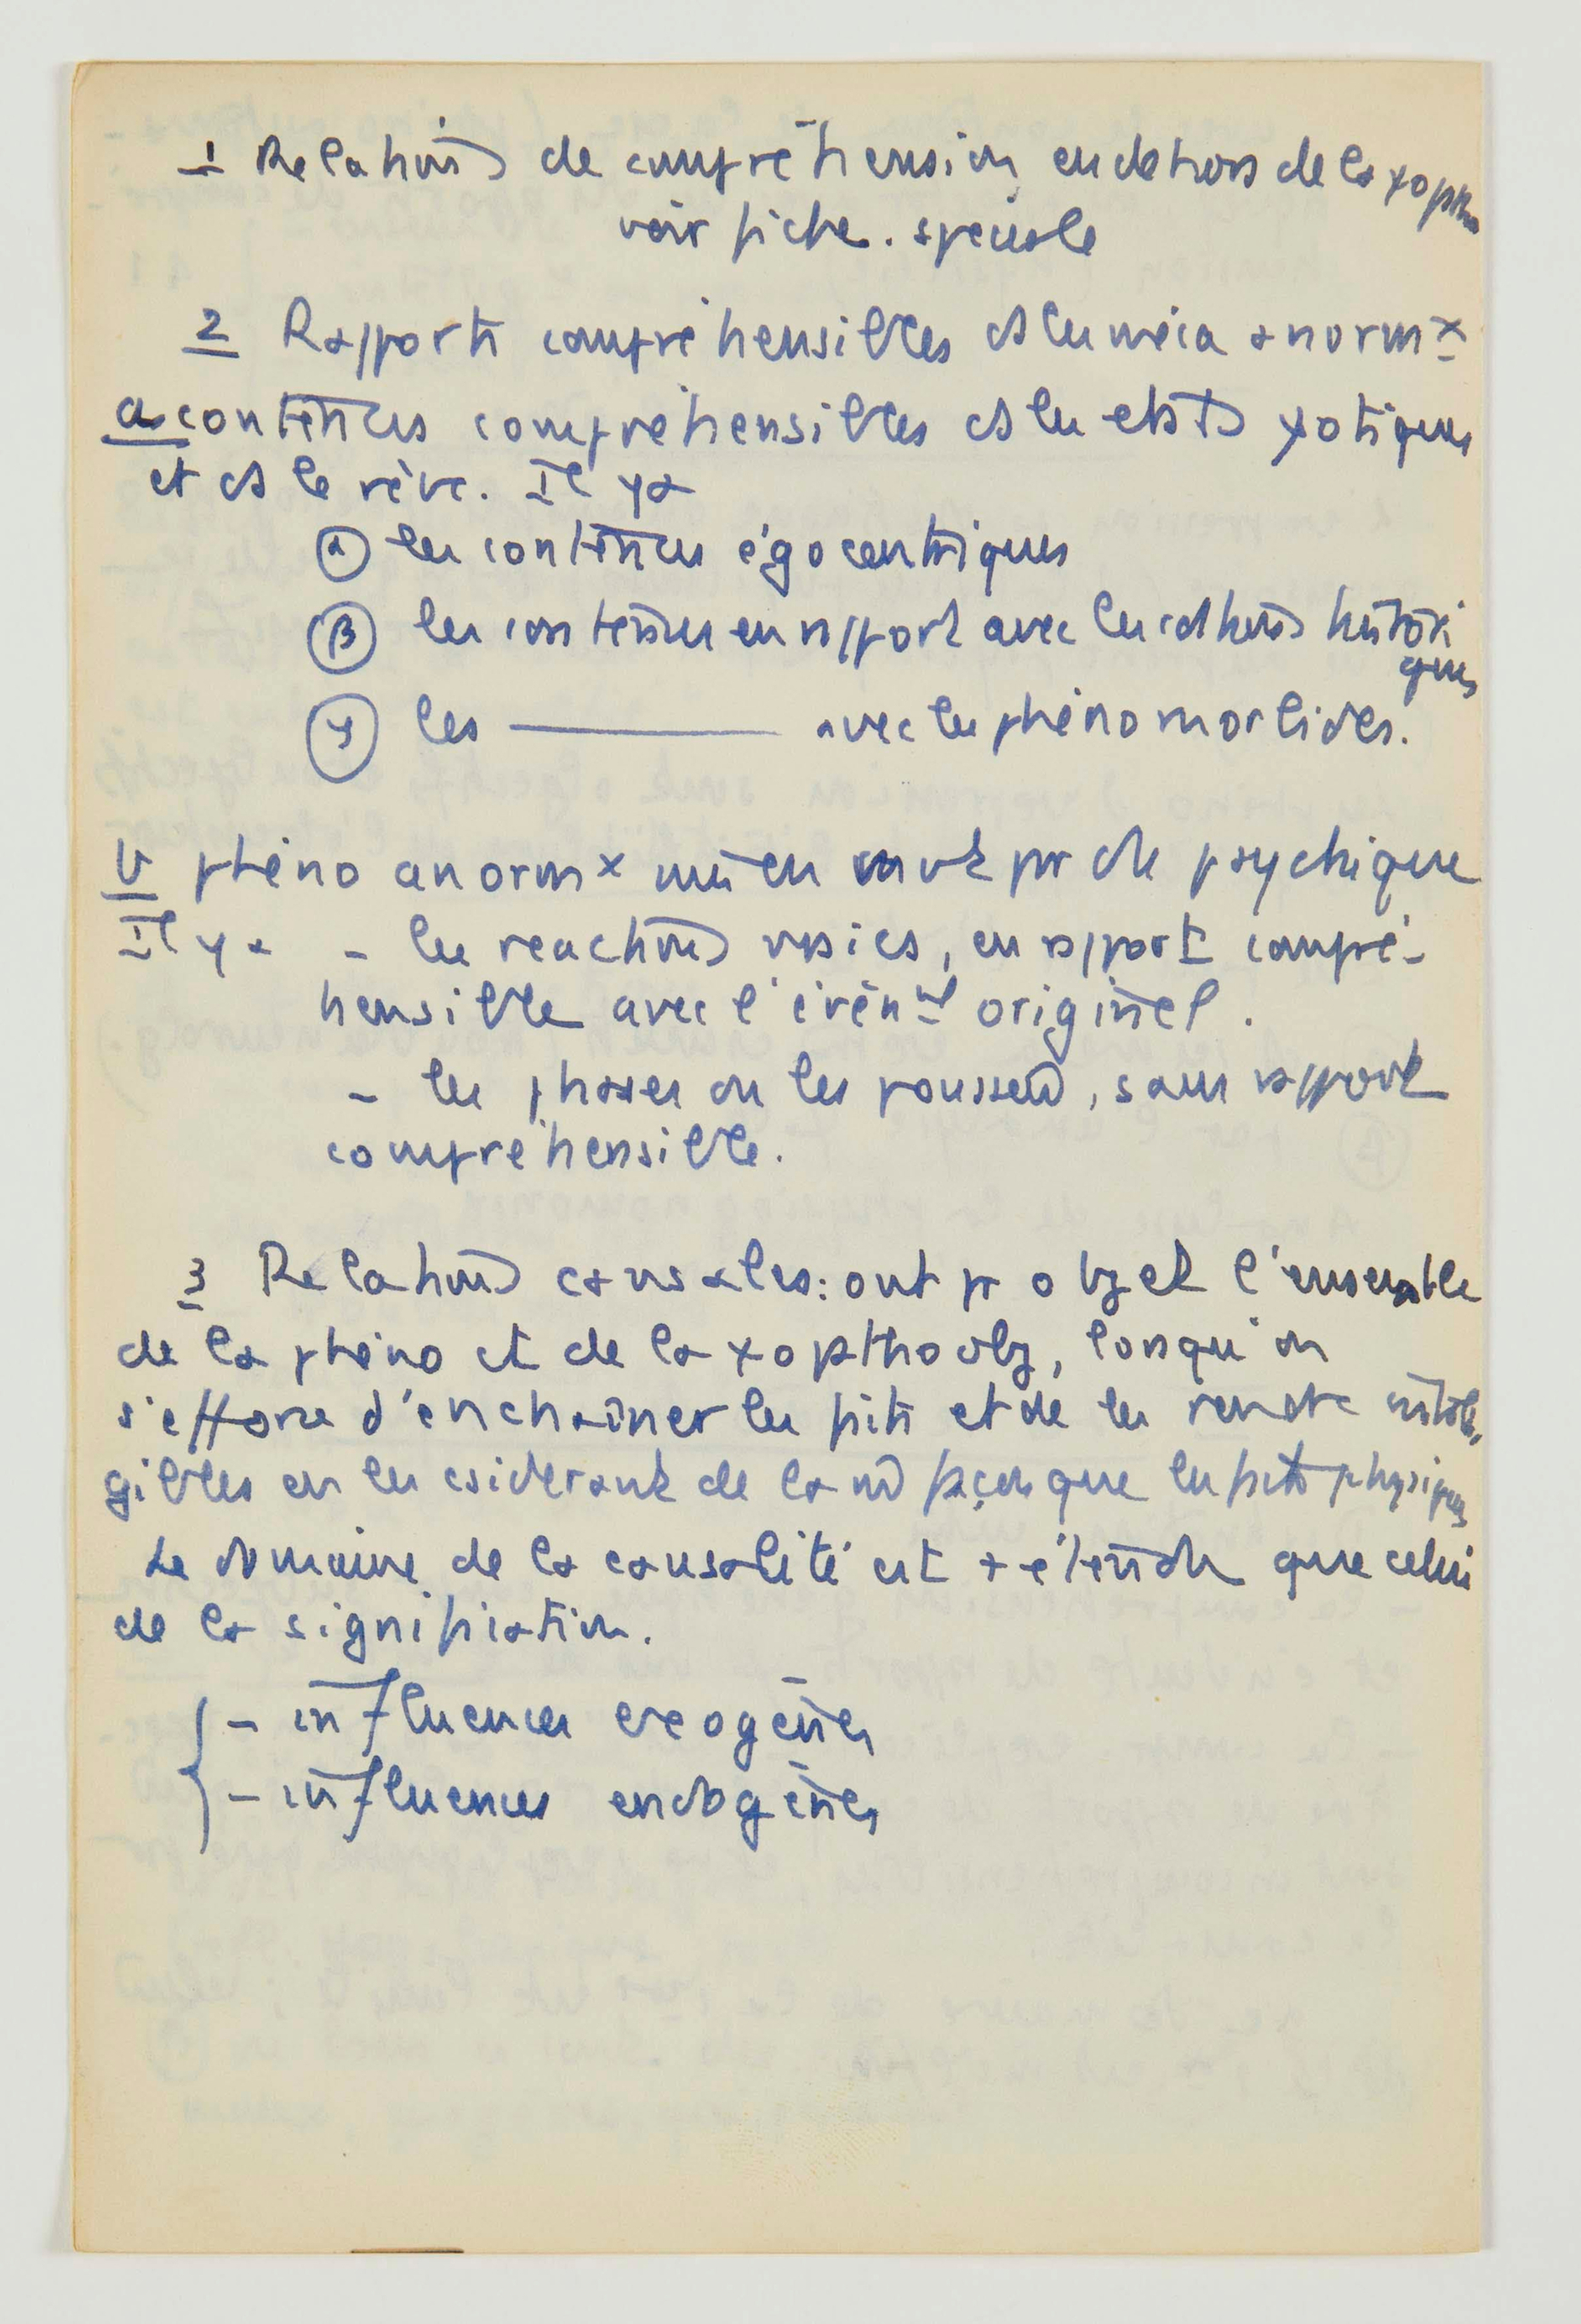 1 Relations de compréhension, en dehors de la χopatho
voir fiche. spéciale
2 Rapports compréhensibles ds les méca anormx
a contenus compréhensibles ds les états χotiques
et ds le rêve. Il y a
α les contenus égocentriques
β les contenus en rapport avec les cdtions histori
ques
γ les ——— avec les phéno morbides.
b phéno anormx mis en mvt par choc psychique
Il y a - les réactions vraies, en rapport compré-
hensible avec l'évènt originel.
- les phases ou les poussées, sans rapport
compréhensible.
3 Relations causales: ont pr objet l'ensemble
de la phéno et de la χopatho obj, lorsqu'on
s'efforce d'enchaîner les faits et de les rendre intelli
gibles en les csidérant de la m façon que les faits physiques
Le domaine de la causalité est + étendu que celui
de la signification.
- influences exogènes
- influences endogènes